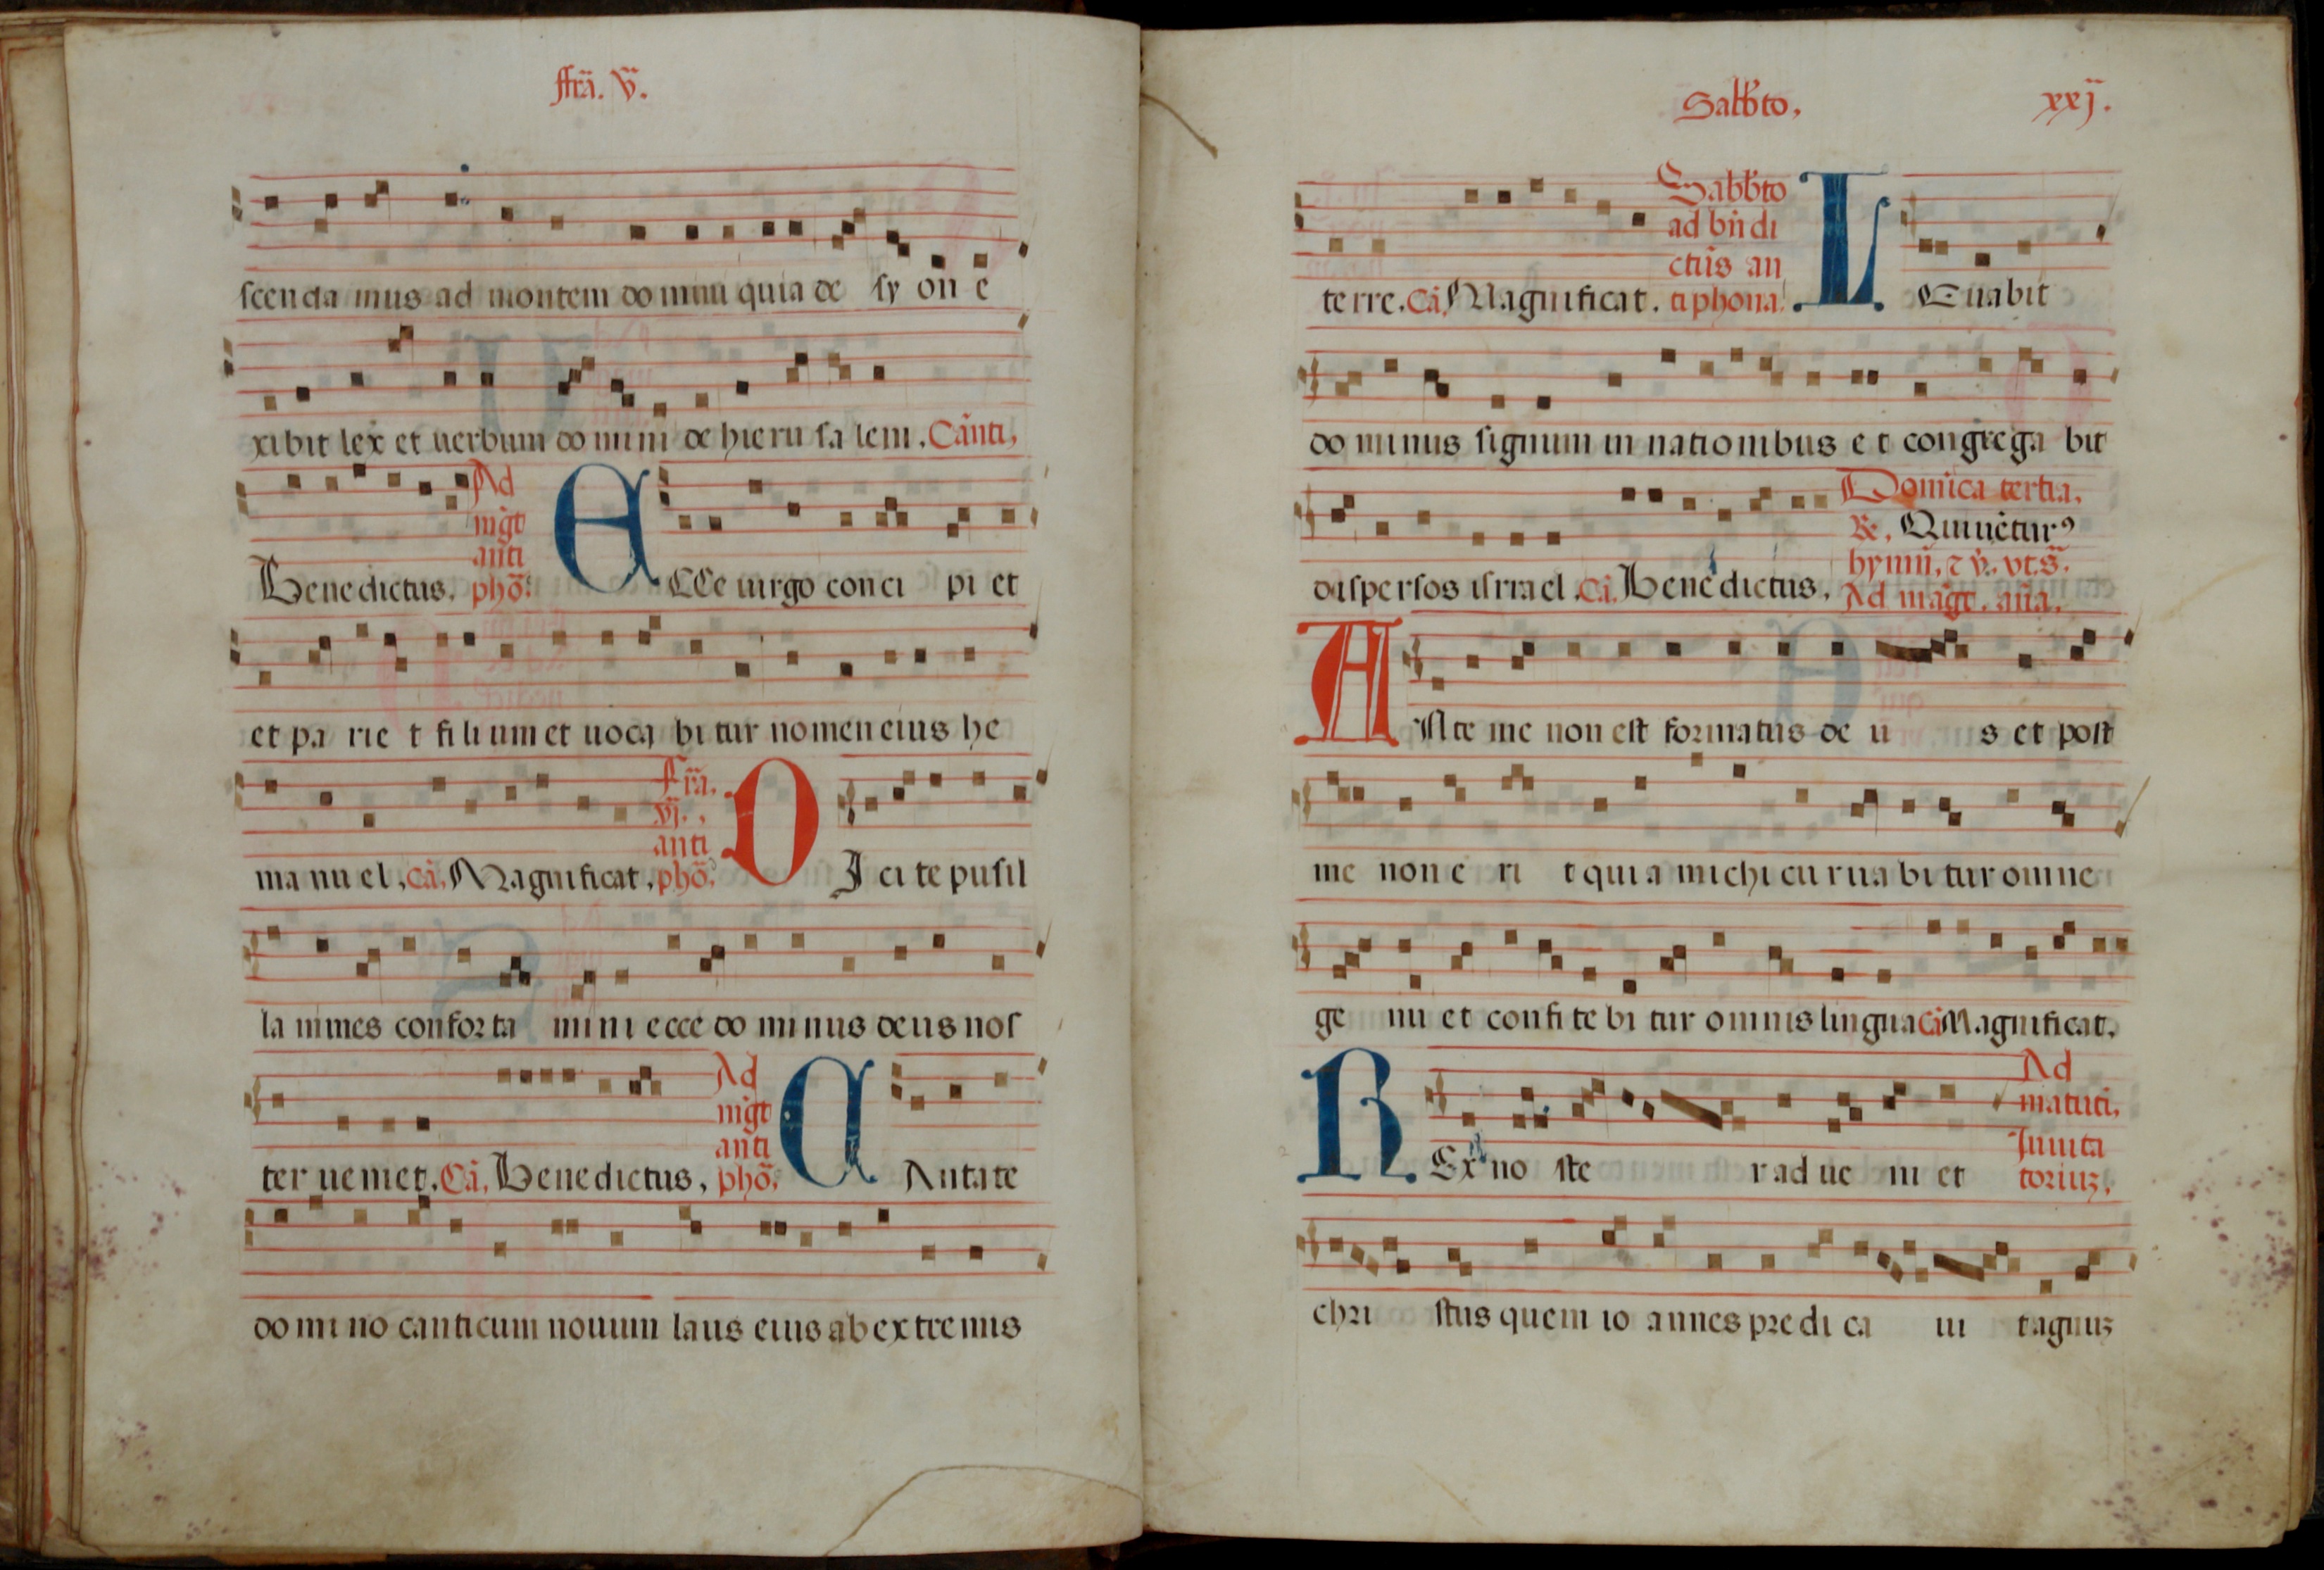 ffrã. v̄.
scenda mus ad montem do mini quia de sy on e
xibit lex et uerbum do mini de hieru sa lem. Cãnti,
Ad
mgt
anti
Benedictus. phõ.
E CCe uirgo conci pi et
et pa rie t fili um et uoca bi tur nomen eius he
ma nu el, cã, Magnificat.
frã.
vj.
anti
phõ.
D J ci te pusil
la nimes confor ta mini ecce do minus deus nos
ter ueniet. Cã, Benedictus,
Ad
mgt
anti
phõ.
C Antate
do mi no canticum nouum laus eius ab ex tre mis
Sabb̃to, xxj.
terre. Cã, Magnificat.
Sabb̃to
ad bñdi
ctũs an
tiphona.
L Euabit
do minus signum in nationibus e t congrega bit
dispersos israel. Cã, Benedictus,
Domĩca tertia,
R. Qui uẽturꝰ
hymñ, ⁊ v̉. vt. s̃.
Ad mãgt. añã.
A Nte me non est formatus de u s et post
me non e ri t quia michi curua bi tur omne
ge nu et confi te bi tur omnis lingua Cã Magnificat.
R Ex no ste r ad ue ni et
Ad
matuti,
Inuita
toriuȝ,
chri stus quem io annes predi ca ui t agnuȝ